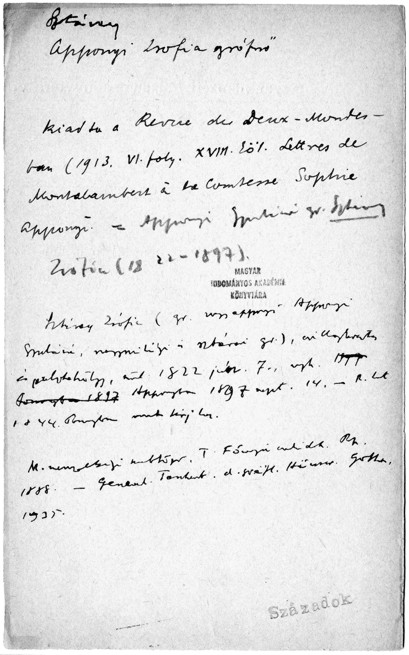 Sztáray
Apponyi Zsófia grófnő
Kiadta a Revue des Deux-Mondes-
ban (1913. VI. foly. XVIII. köt. Lettres de
Montalambert à la Comtesse Sophie
Apponyi. = Apponyi gr. Sztáray
Zsófia (1822-1897).
MAGYAR
TUDOMÁNYOS AKADÉMIA
KÖNYVTÁRA
Sztáray Zsófia (gr. nagyapponyi Apponyi
nagymihályi és sztárai gr.), csillagkeresztes
és palotahölgy, szül. 1822 7., mgh.
1897 Apponyban 1897 14. —
1844.
M. nemzetségi zsebkönyv. I. Főrangú családok. Bp.
1888. — Geneal. Taschenb. d. gräfl. Häuser. Gotha,
1935.
Századok